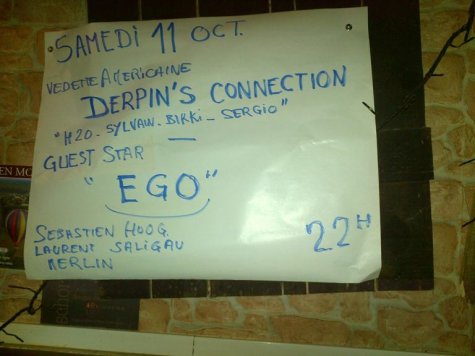 SAMEDI 11 OCT.
VEDETTE AMERICAINE
DERPIN'S CONNECTION
"H2O - SYLVAIN - BIRKI - SERGIO"
GUEST STAR
"EGO"
SEBASTIEN HOOG
LAURENT SALIGAU
MERLIN
22H